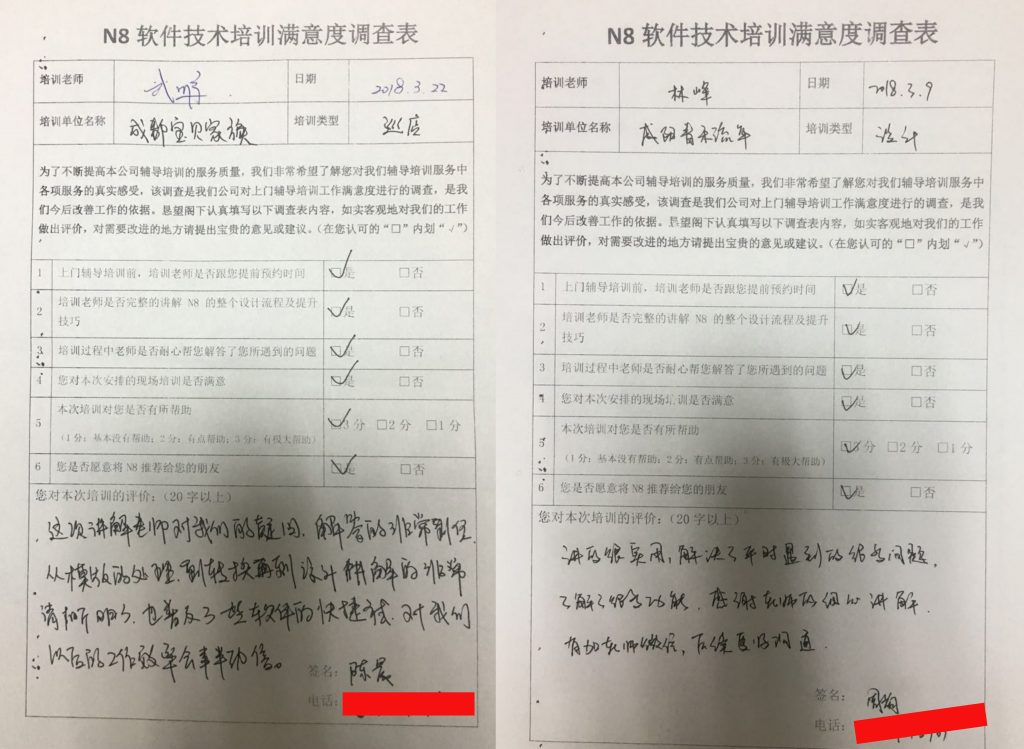 N8 软件技术培训满意度调查表
培训老师 武鹏 日期 2018.3.22
培训单位名称 成都宝贝家族 培训类型 巡店
为了不断提高本公司辅导培训的服务质量，我们非常希望了解您对我们辅导培训服务中
各项服务的真实感受，该调查是我们公司对上门辅导培训工作满意度进行的调查，是我
们今后改善工作的依据。恳望阁下认真填写以下调查表内容，如实客观地对我们的工作
做出评价，对需要改进的地方请提出宝贵的意见或建议。（在您认可的“□”内划“√”）
1 上门辅导培训前，培训老师是否跟您提前预约时间 ☑是 □否
2 培训老师是否完整的讲解 N8 的整个设计流程及提升 ☑是 □否
技巧
3 培训过程中老师是否耐心帮您解答了您所遇到的问题 ☑是 □否
4 您对本次安排的现场培训是否满意 ☑是 □否
5 本次培训对您是否有所帮助 ☑3分 □2分 □1分
（1分：基本没有帮助；2分：有点帮助；3分：有极大帮助）
6 您是否愿意将 N8 推荐给您的朋友 ☑是 □否
您对本次培训的评价：（20 字以上）
这次讲解老师对我们的疑问，解答的非常到位
从模版的处理，到转换再到设计 讲解的非常
清晰明了，也普及了一些软件的快捷键，对我们
以后的工作效率会事半功倍。
签名： 陈晨
电话：
N8 软件技术培训满意度调查表
培训老师 林峰 日期 2018.3.9
培训单位名称 青禾流年 培训类型 设计
为了不断提高本公司辅导培训的服务质量，我们非常希望了解您对我们辅导培训服务中
各项服务的真实感受，该调查是我们公司对上门辅导培训工作满意度进行的调查，是我
们今后改善工作的依据。恳望阁下认真填写以下调查表内容，如实客观地对我们的工作
做出评价，对需要改进的地方请提出宝贵的意见或建议。（在您认可的“□”内划“√”）
1 上门辅导培训前，培训老师是否跟您提前预约时间 ☑是 □否
2 培训老师是否完整的讲解 N8 的整个设计流程及提升 ☑是 □否
技巧
3 培训过程中老师是否耐心帮您解答了您所遇到的问题 ☑是 □否
4 您对本次安排的现场培训是否满意 ☑是 □否
5 本次培训对您是否有所帮助 ☑3分 □2分 □1分
（1分：基本没有帮助；2分：有点帮助；3分：有极大帮助）
6 您是否愿意将 N8 推荐给您的朋友 ☑是 □否
您对本次培训的评价：（20 字以上）
讲的很实用，解决了平时遇到的很多问题，
了解了很多功能，感谢老师的细心讲解，
有加老师微信，后续更好沟通
签名： 周
电话：